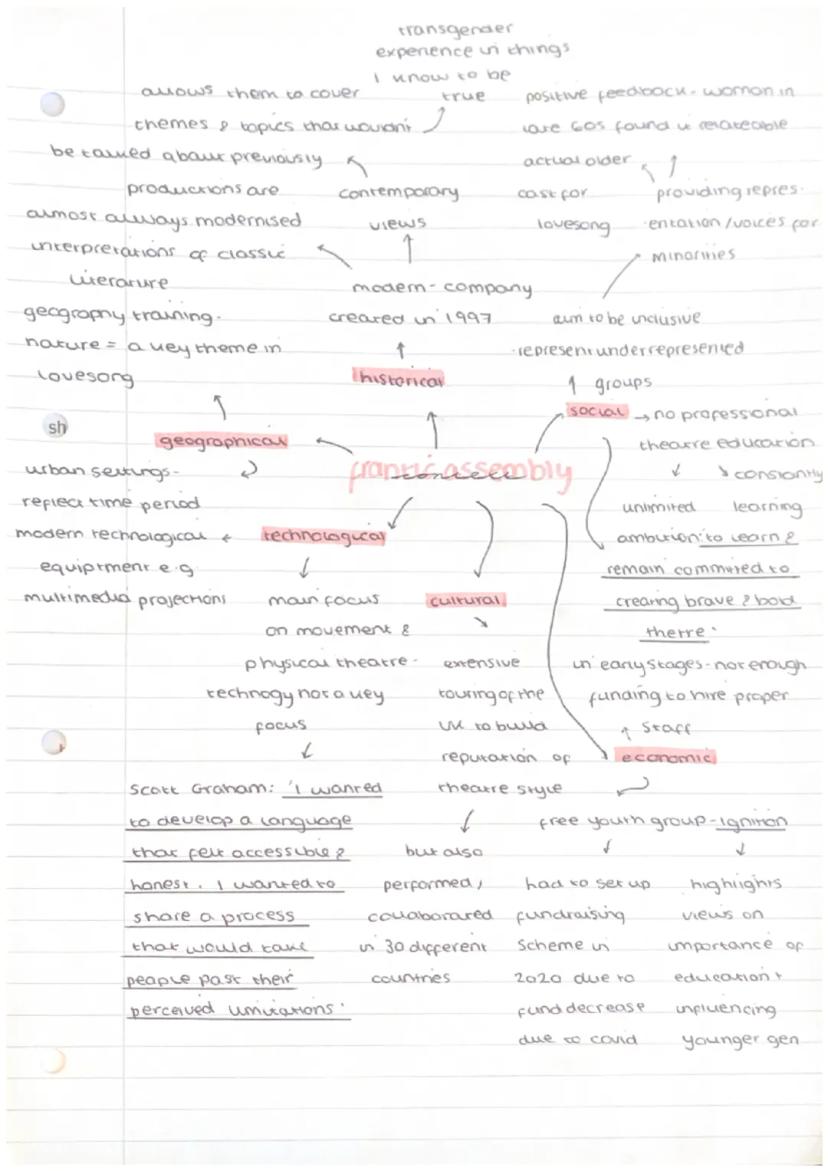 transgender
experience in things
I know to be
true
allows them to cover
themes & topics that wouldn't
be talked about previously
productions are
almost always modernised
interpretations of classic
literature
contemporary
views
modern - company
created in 1997
historical
positive feedback - woman in
late 60s found it relateable
actual older
cast for
lovesong
providing repres-
entation/voices for
minorities
aim to be inclusive
-represent underrepresented
groups
social → no professional
theatre education
constantly
learning
unlimited
ambition 'to learn &
remain commited to
creating brave & bold
thetre'
geography training-
nature = a key theme in
lovesong
geographical
urban settings-
reflect time period
frantic assembly
context
technological
modern technological
equiptment e.g
multimedia projections
main focus
on movement &
physical theatre -
technogy not a key
focus
Scott Graham: 'I wanted
to develop a language
that felt accessible &
honest. I wanted to
share a process
that would take
people past their
perceived limitations'
cultural
extensive
touring of the
UK to build
reputation of
theatre style
but also
performed/
collaborated
in 30 different
countries
in early stages - not enough
funding to hire proper
staff
economic
free youth group - ignition
had to set up
fundraising
scheme in
2020 due to
fund decrease
due to covid
highlights
views on
importance of
education +
influencing
younger gen
sh